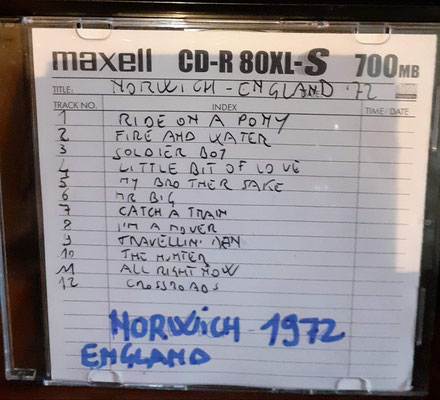 maxell CD-R 80XL-S 700MB
TITLE: NORWICH - ENGLAND '72
TRACK NO. INDEX TIME/DATE
1 RIDE ON A PONY
2 FIRE AND WATER
3 SOLDIER BOY
4 LITTLE BIT OF LOVE
5 MY BROTHER JAKE
6 MR BIG
7 CATCH A TRAIN
8 I'M A MOVER
9 TRAVELLIN' MAN
10 THE HUNTER
11 ALL RIGHT NOW
12 CROSSROADS
NORWICH 1972
ENGLAND